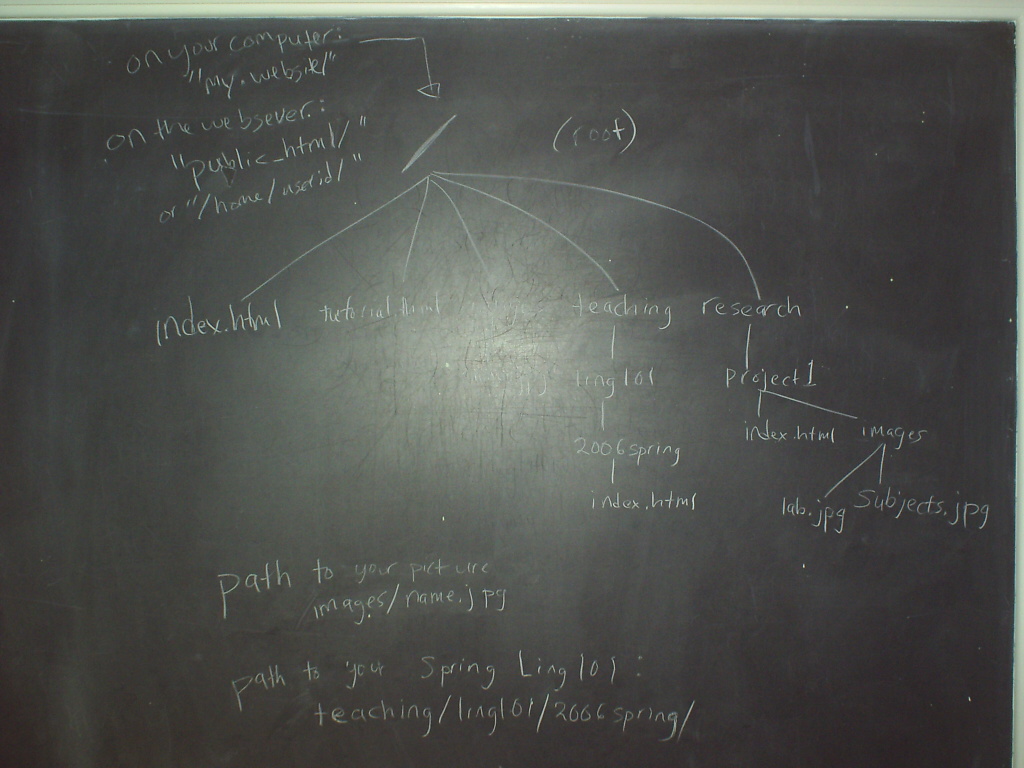 on your computer:
"my.website/"
on the websever:
"public_html/"
or "/home/userid/"
/
(root)
index.html tutorial.html teaching research
ling101 project1
index.html images
2006spring
lab.jpg subjects.jpg
index.html
path to your picture
images/name.jpg
path to your Spring Ling101:
teaching/ling101/2006spring/